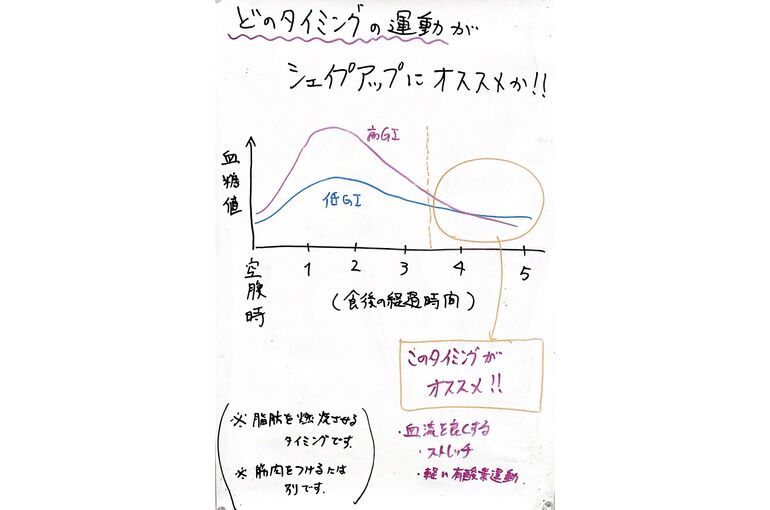 どのタイミングの運動が
シェイプアップにオススメか!!
高GI
低GI
血糖値
空腹時
1 2 3 4 5
(食後の経過時間)
このタイミングが
オススメ!!
※ 脂肪を燃焼させる
タイミングです。
※ 筋肉をつけるには
別です。
・血流を良くする
・ストレッチ
・軽い有酸素運動